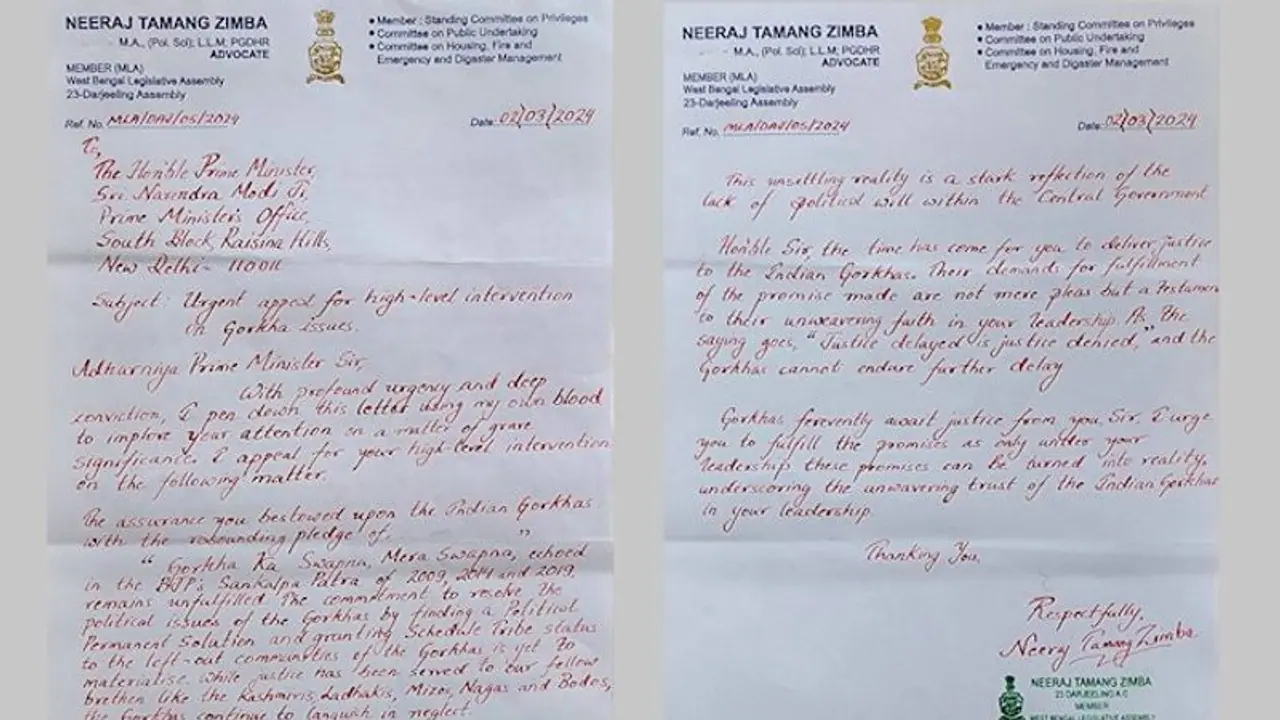 NEERAJ TAMANG ZIMBA
M.A., (Pol. Sol); L.L.M; PGDHR
ADVOCATE
MEMBER (MLA)
West Bengal Legislative Assembly
23-Darjeeling Assembly
• Member : Standing Committee on Privileges
• Committee on Public Undertaking
• Committee on Housing, Fire and
Emergency and Digaster Management
Ref. No. MLA/DAJ/05/2024
Date: 02/03/2024
To,
The Hon'ble Prime Minister,
Sri Narendra Modi Ji,
Prime Minister's Office,
South Block, Raisina Hills,
New Delhi - 110011
Subject: Urgent appeal for high-level intervention
on Gorkha issues.
Adharniya Prime Minister Sir,
With profound urgency and deep
conviction, I pen down this letter using my own blood
to implore your attention on a matter of grave
significance. I appeal for your high-level intervention
on the following matter.
The assurance you bestowed upon the Indian Gorkhas
with the resounding pledge of.
" Gorkha Ka Swapna, Mera Swapna, " echoed
in the BJP's Sankalpa Patra of 2009, 2014 and 2019,
remains unfulfilled. The commitment to resolve the
political issues of the Gorkhas by finding a Political
Permanent Solution and granting Schedule Tribe status
to the left-out communities of the Gorkhas is yet to
materialise, while justice has been served to our fellow
brethen like the Kashmiris, Ladhakis, Mizos, Nagas and Bodos,
the Gorkhas continue to languish in neglect.
NEERAJ TAMANG ZIMBA
M.A., (Pol. Sol); L.L.M; PGDHR
ADVOCATE
MEMBER (MLA)
West Bengal Legislative Assembly
23-Darjeeling Assembly
• Member : Standing Committee on Privileges
• Committee on Public Undertaking
• Committee on Housing, Fire and
Emergency and Digaster Management
Ref. No. MLA/DAJ/05/2024
Date: 02/03/2024
This unsettling reality is a stark reflection of the
lack of political will within the Central Government
Hon'ble Sir, the time has come for you to deliver justice
to the Indian Gorkhas. Their demands for fulfillment
of the promise made are not mere pleas but a Testamen
to their unweavering faith in your leadership. As the
saying goes, "Justice delayed is justice denied," and the
Gorkhas cannot endure further delay
Gorkhas ferevently await justice from you, Sir. I urge
you to fulfill the promises as only under your
leadership these promises can be turned into reality,
underscoring the unwavering trust of the Indian Gorkhas
in your leadership.
Thanking You,
Respectfully,
Neeraj Tamang Zimba
NEERAJ TAMANG ZIMBA
23 DARJEELING A.C
MEMBER
WEST BENGAL LEGISLATIVE ASSEMBLY